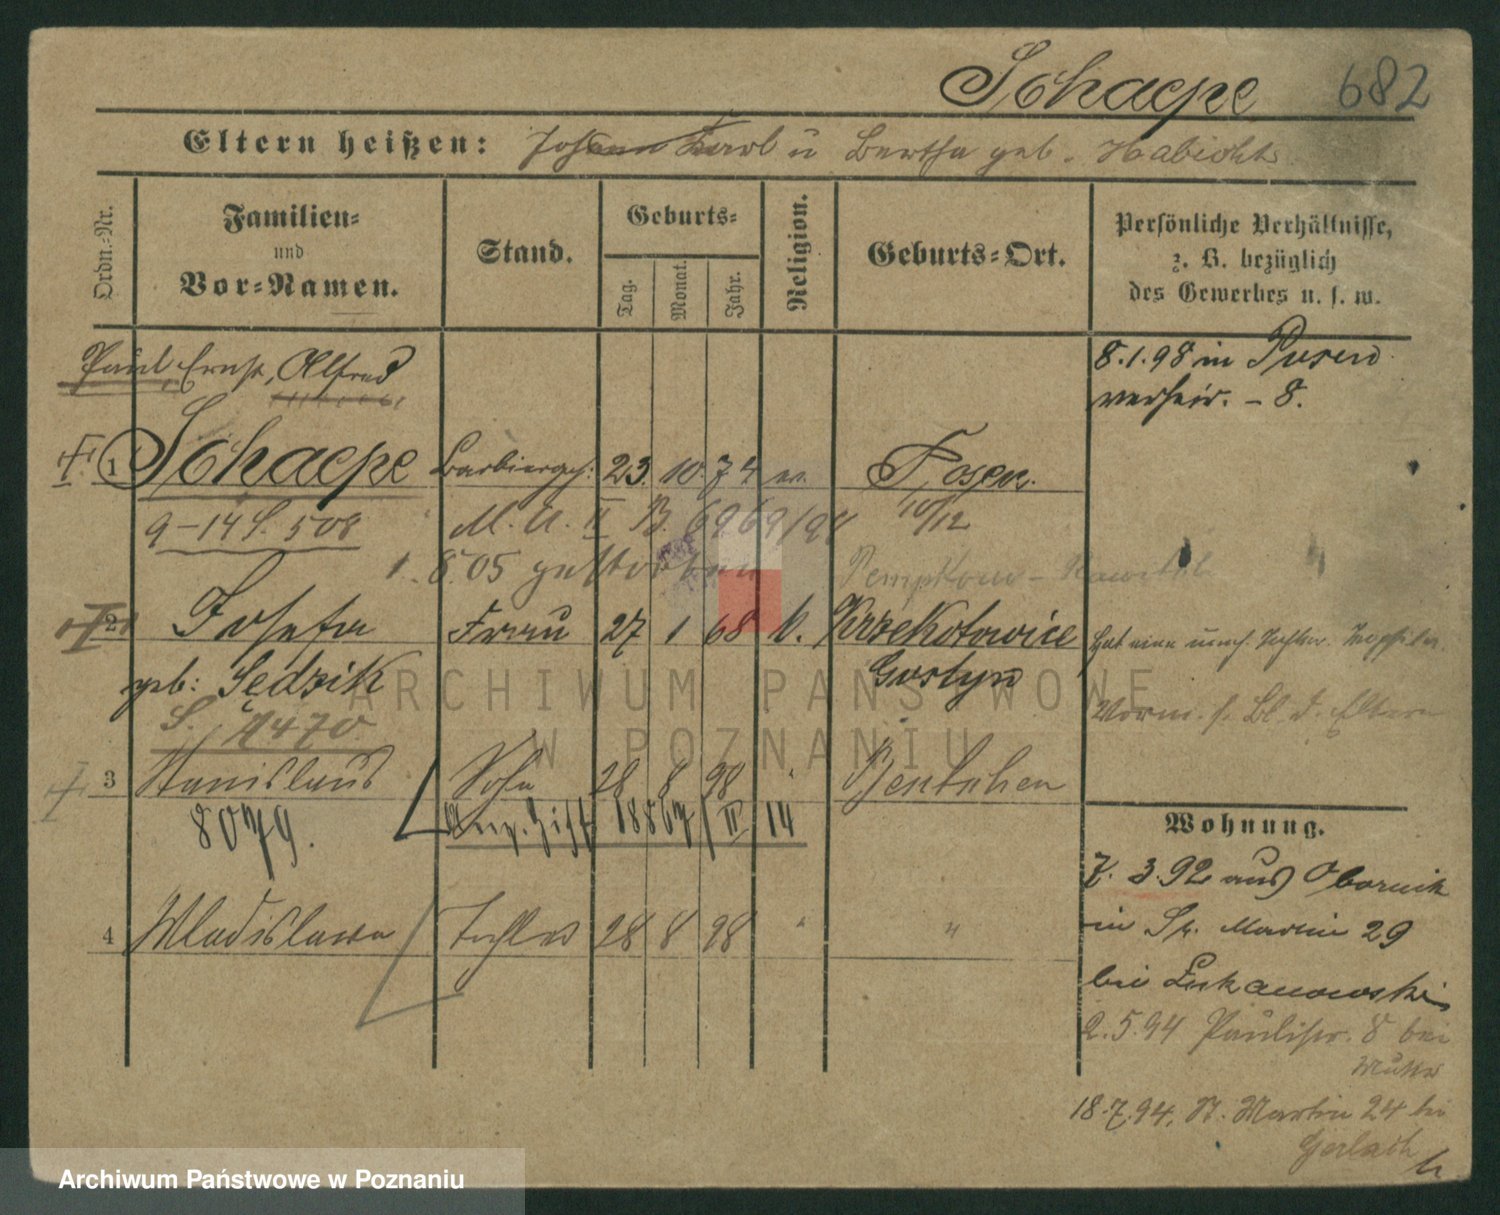 Schaepe 682
Eltern heißen: Johann Karl u Bertha geb. Habicht
Ordn.-Nr.
Familien-
und
Vor-Namen.
Stand.
Geburts-
Tag.
Monat.
Jahr.
Religion.
Geburts-Ort.
Persönliche Verhältnisse,
z. B. bezüglich
des Gewerbes u. s. w.
Paul, Ernst, Alfred
8.1.98 in Posen
verheir. - 8.
1 Schaepe Barbiergeh: 23. 10. 74 ev. Posen.
9-14 S. 508 M. A. II B. 6969/94 10/12
1. 8. 05 gestorben
2 Josefa Frau 27 1 68 k. Krzekotowice
geb: Sędzik Gostyn
hat eine
Vorm. s. Bl. d. Eltern
S. 4470
3 Stanislaus Sohn 28 8 98 " Bentschen
8079. 18867/II 14
Wohnung.
7. 3. 92 aus Obornik
4 Wladislawa Tochter 28 8 98 " "
in St. Martin 29
bei Lukanowski
2.5.94 Paulistr. 8 bei
Mutter
18.7.94. St. Martin 24 bei
Gerlach
ARCHIWUM PAŃSTWOWE
W POZNANIU
Archiwum Państwowe w Poznaniu